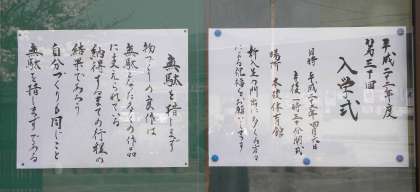 平成二十一年度
第三十回
入学式
日時 平成二十一年四月六日
午後二時三十分開式
場所 本校体育館
新入生の門出に多くの方々
による祝福をお願いします
無駄を惜します
物づくりの実作は
無駄となった多くの作品
に支えられている
納得するまでの行程の
結果であろう
自分づくりも同じこと
無駄を惜しますである